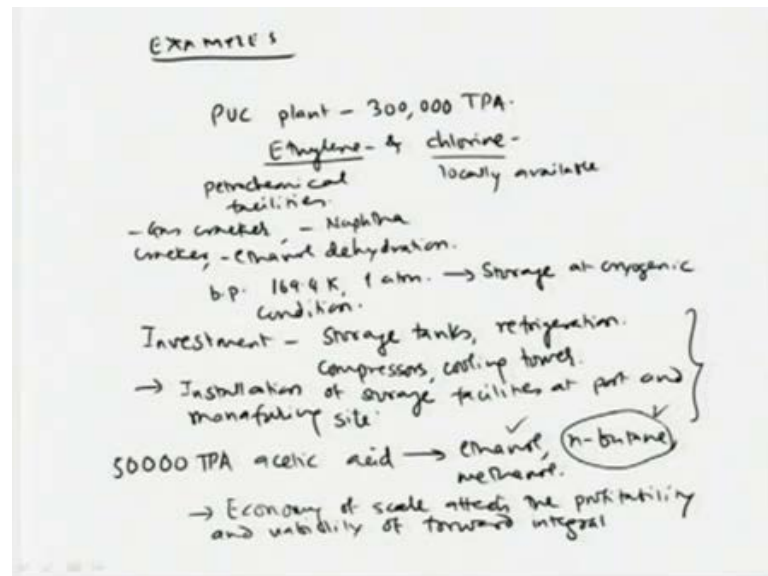 EXAMPLES
PVC plant - 300,000 TPA.
Ethylene - & chlorine -
petrochemical locally available
facilities.
- Gas cracker, - Naphtha
cracker, - ethanol dehydration.
b.p. 169.4 K, 1 atm. → Storage at cryogenic
condition.
Investment - Storage tanks, refrigeration.
compressors, cooling tower.
→ Installation of storage facilities at port and
site.
50000 TPA acetic acid → ethanol, n-butane,
methanol.
→ Economy of scale affects the profitability
and viability of forward integral